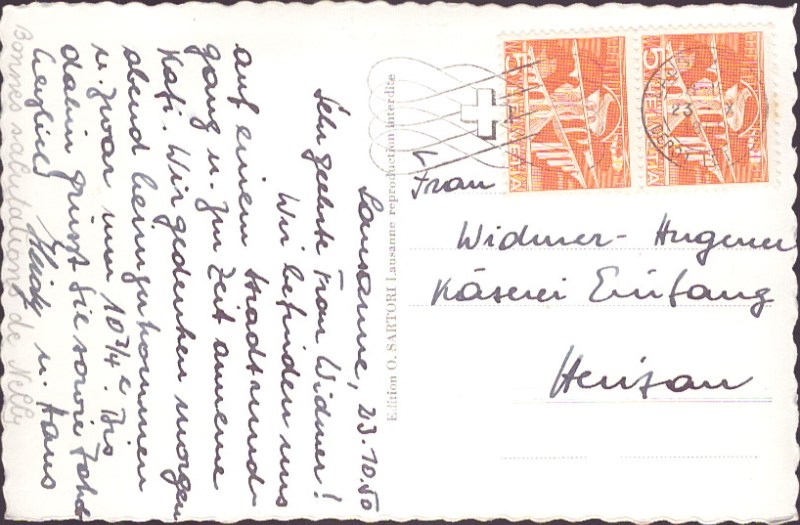 Lausanne, 23.10.50
Sehr geehrte Frau Widmer!
Wir befinden uns
auf einem Stadtrund-
gang u. zur Zeit
Kafi. Wir gedenken morgen
abend heimzukommen
u. zwar um 10 3/4 h. Bis
dahin grüsst Sie sowie
herzlich Heidy u. Hans
Bonnes salutations de Nelly
Edition O. SARTORI Lausanne reproduction interdite
5 HELVETIA
5 HELVETIA
Frau
Widmer-Hugener
Käserei Einfang
Herisau